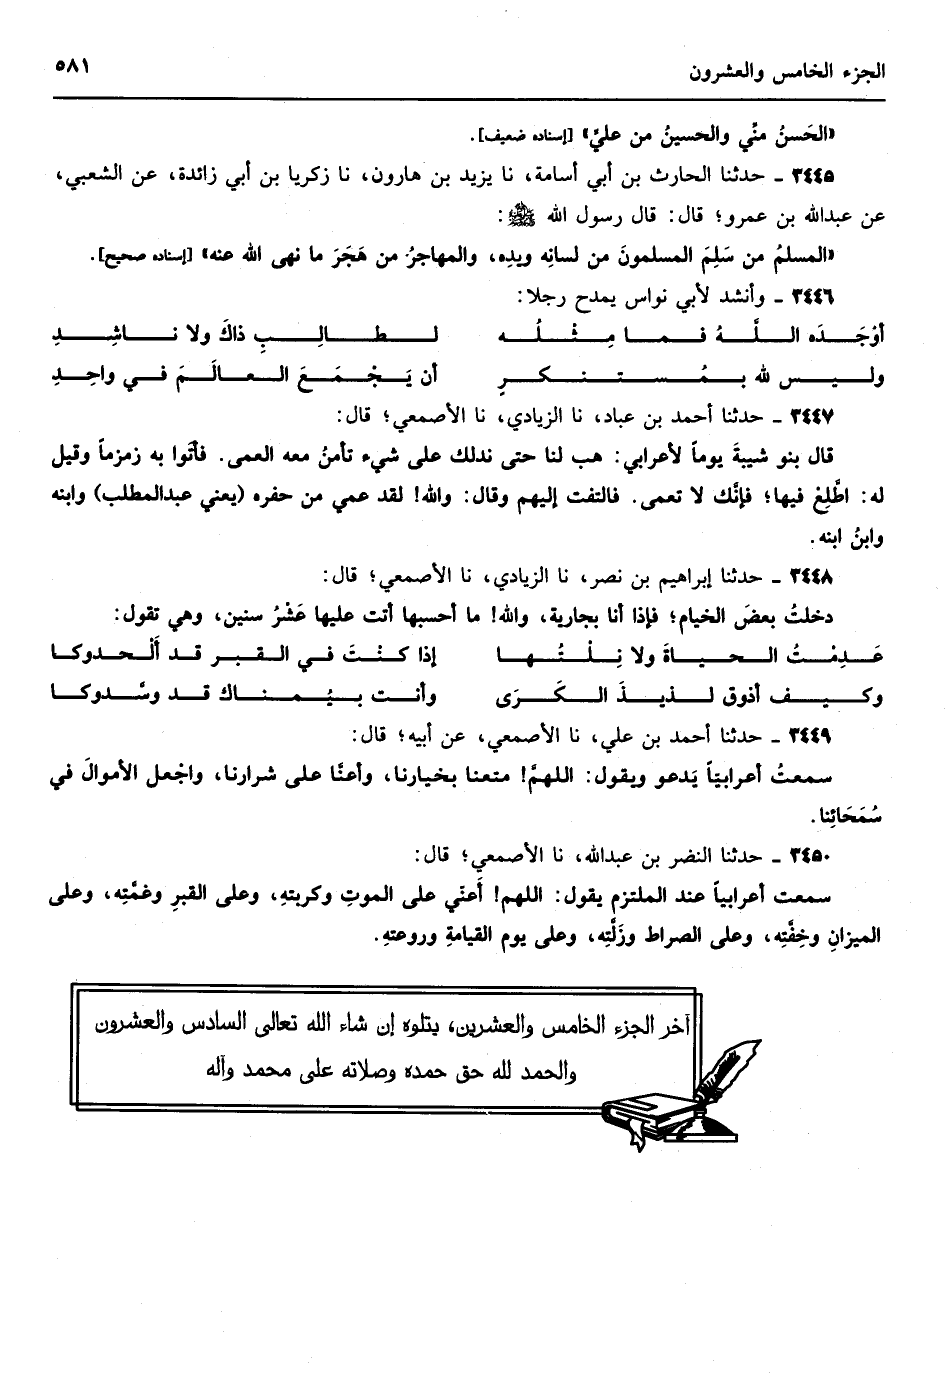 الجزء الخامس والعشرون ٥٨١
«الحَسنُ منِّي والحسينُ من عليٍّ» [إسناده ضعيف].
٣٤٤٥ ـ حدثنا الحارث بن أبي أسامة، نا يزيد بن هارون، نا زكريا بن أبي زائدة، عن الشعبي،
عن عبدالله بن عمرو؛ قال: قال رسول الله ﷺ:
«المسلمُ من سَلِمَ المسلمونَ من لسانِه ويدِه، والمهاجرُ من هَجَرَ ما نهى الله عنه» [إسناده صحيح].
٣٤٤٦ ـ وأنشد لأبي نواس يمدح رجلا:
أوْجَدَه اللَّهُ فما مِثْلُه لطالِبٍ ذاكَ ولا ناشِدِ
وليس لله بمُستنكرٍ أن يَجْمَعَ العالَمَ في واحِدِ
٣٤٤٧ ـ حدثنا أحمد بن عباد، نا الزيادي، نا الأصمعي؛ قال:
قال بنو شيبةَ يوماً لأعرابي: هب لنا حتى ندلك على شيء تأمنُ معه العمى. فأتَوا به زمزماً وقيل
له: اطَّلِعْ فيها؛ فإنَّك لا تعمى. فالتفت إليهم وقال: والله! لقد عمي من حفره (يعني عبدالمطلب) وابنه
وابنُ ابنه.
٣٤٤٨ ـ حدثنا إبراهيم بن نصر، نا الزيادي، نا الأصمعي؛ قال:
دخلتُ بعضَ الخيام؛ فإذا أنا بجارية، والله! ما أحسبها أتت عليها عَشْرُ سنين، وهي تقول:
عَدِمْتُ الحياةَ ولا نِلْتُها إذا كنْتَ في القبر قد ألْحدوكا
وكيف أذوق لذيذَ الكَرَى وأنت بيُمناك قد وسَّدوكا
٣٤٤٩ ـ حدثنا أحمد بن علي، نا الأصمعي، عن أبيه؛ قال:
سمعتُ أعرابيّاً يَدعو ويقول: اللهمَّ! متعنا بخيارنا، وأعنَّا على شرارنا، واجْعل الأموالَ في
سُمَحَائِنا.
٣٤٥٠ ـ حدثنا النضر بن عبدالله، نا الأصمعي؛ قال:
سمعت أعرابياً عند الملتزم يقول: اللهم! أَعنِّي على الموتِ وكربتهِ، وعلى القبرِ وغمَّتِه، وعلى
الميزانِ وخِفَّتِه، وعلى الصراط وزَلَّتِه، وعلى يوم القيامةِ وروعتهِ.
آخر الجزء الخامس والعشرين، يتلوه إن شاء الله تعالى السادس والعشرون
والحمد لله حق حمده وصلاته على محمد وآله